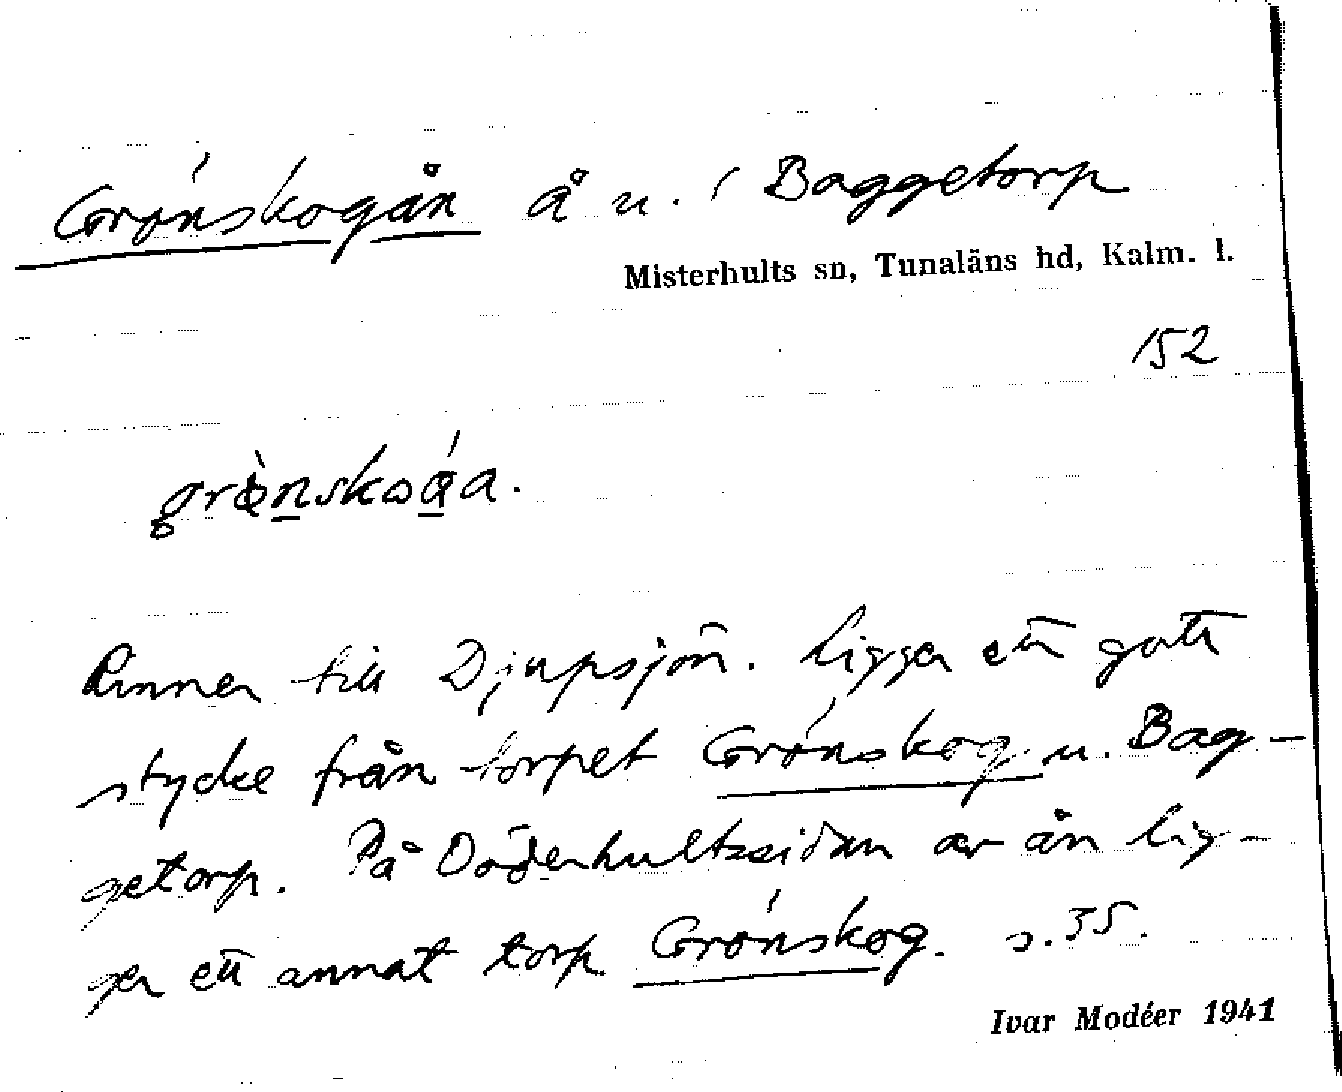 Grönskogån å u. i Baggetorp
Misterhults sn, Tunaläns hd, Kalm. l.
152
grö̀nskoá̱a.
Rinner till Djupsjön. Ligger ett gott
stycke från torpet Grönskog u. Bag-
getorp. På Döderhultssidan av ån lig-
ger ett annat torp Grönskog. s. 35.
Ivar Modéer 1941